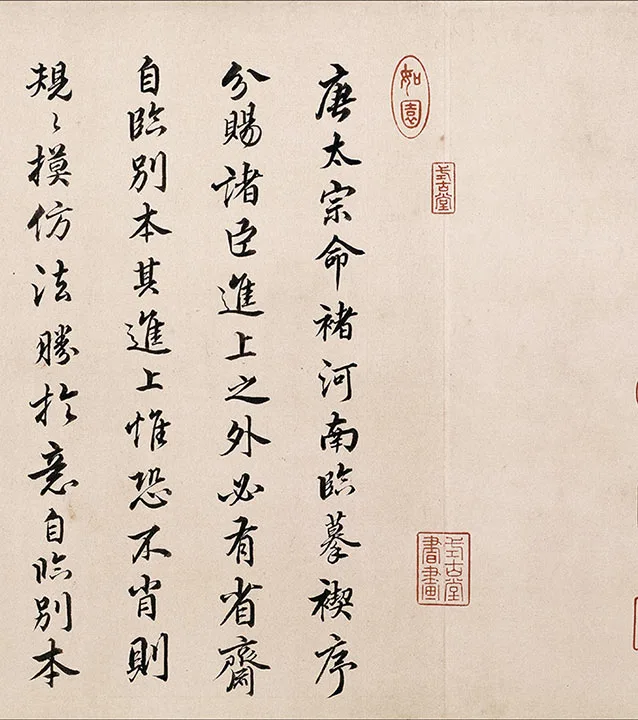 如園
式古堂
式古堂書畫
唐太宗命褚河南臨摹禊序
分賜諸臣進上之外必有省齋
自臨別本其進上惟恐不肖則
規〻摸仿法勝於意自臨別本